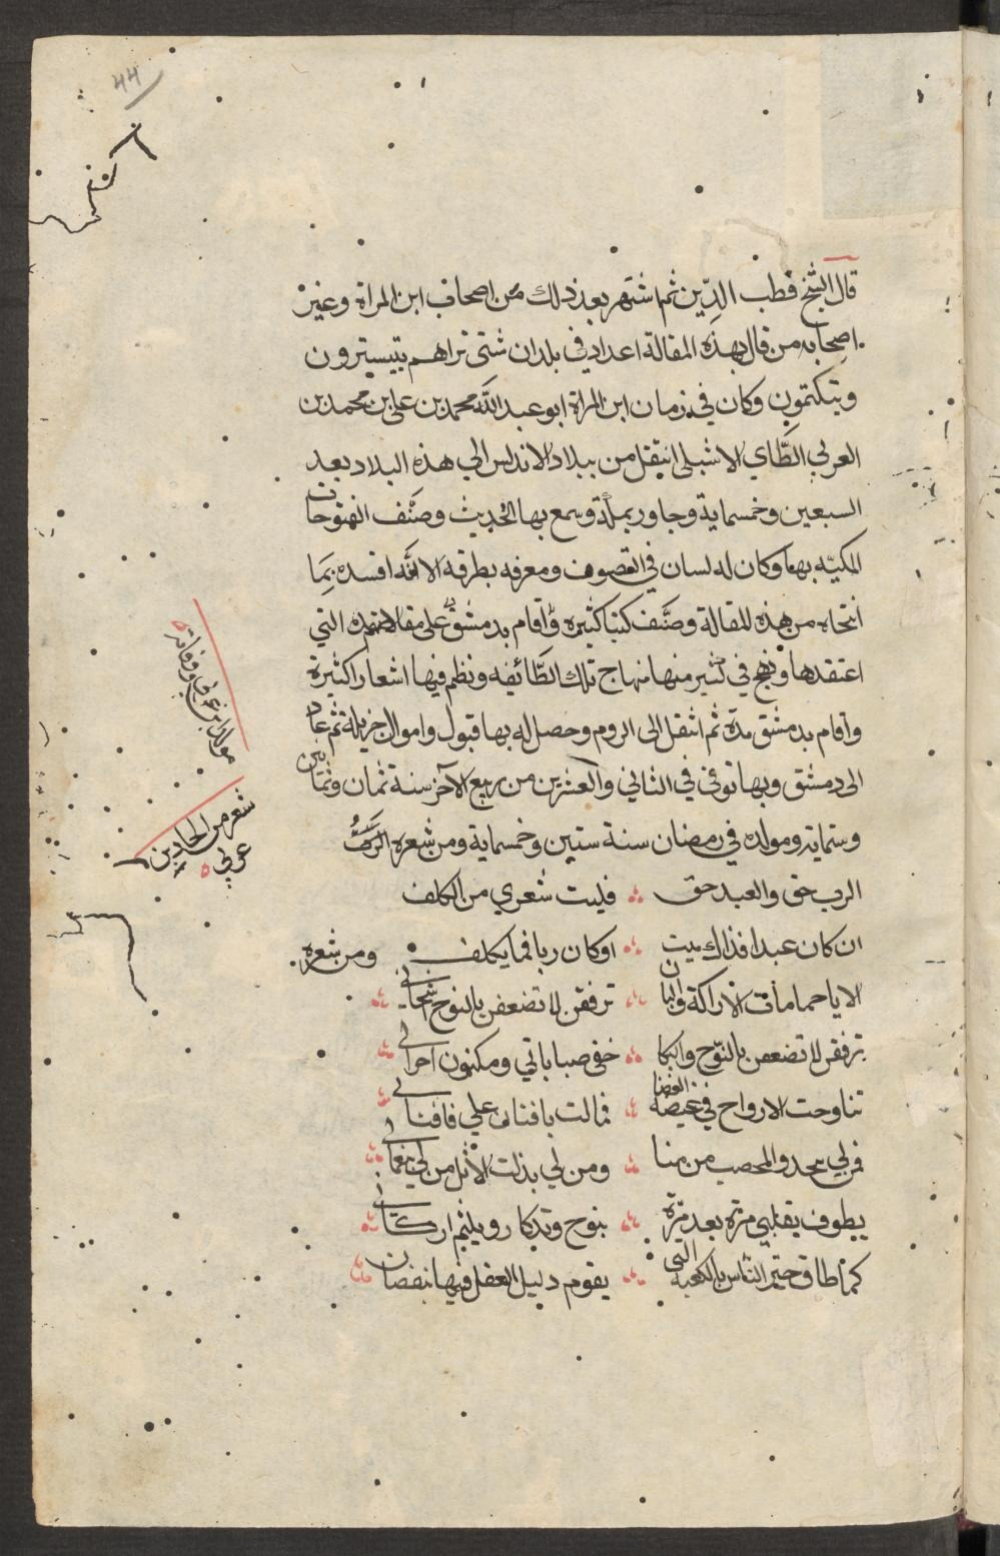 ٤٤
قال الشيخ قطب الدّين ثم اشتهر بعد ذلك من اصحاف ابن المراة وغيز
اصحابه من قال بهذه المقالة اعداد في بلدان شتى تراهم يتيسترون
ويتكتمون وكان في زمان ابن المراة ابو عبد الله محمد بن على بن محمد بن
العربي الطّاي الاشبلى انتقل من ببلاد الاندلس الي هذه البلاد بعد
السبعين وخمسماية وجاور بمكة وسمع بها الحديث وصنّف الفتوحات
المكيّه بها وكان له لسان في التصوف ومعرفه بطرقه الا انّه افسده بمَا
انتحاه من هذه المقالة وصنّف كتبا كثيره واقام بدمشق على مقالاته هذه التي
اعتقدها ونهج في كثير منها منهاج تلك الطّائيفه ونظم فيها اشعارا كثيرة
واقام بدمشق مدّة ثم انتقل الى الروم وحصل له بها قبول واموال جزيلة ثم عاد
الى دمشق وبها توفي في الثاني والعشرين من ربيع الآخر سنة ثمان وثمانين
وستماية ومولده في رمضان سنة ستين وخمساية ومن شعره
الرب حق والعبد حق فليت شعري من المكلف
ان كان عبدا فذاك ميت او كان ربا فما يكلف ومن شعره
الا يا حمامات الاراكة والبان ترفقن لا تضعفن بالنوح اشجاني
ترفقن لا تضعفن بالنوّح والبكا خفى صباباتي ومكنون احزاني
تناوحت الارواح في غيضة الغضا فمالت بافنان علي فافناني
فمن لي بجمد والمحصب من منا ومن لي بذات الاثل من لي بنعمان
يطوف بقلبي مرّة بعد مرّة بنوح وتدكار ويلثم اركاني
كما طاف خير النّاس بالكعبة التي يقوم دليل العقل فيها بنقصان
مولد ابن عربي ووفاته
شعر من الحاد بن
عربي